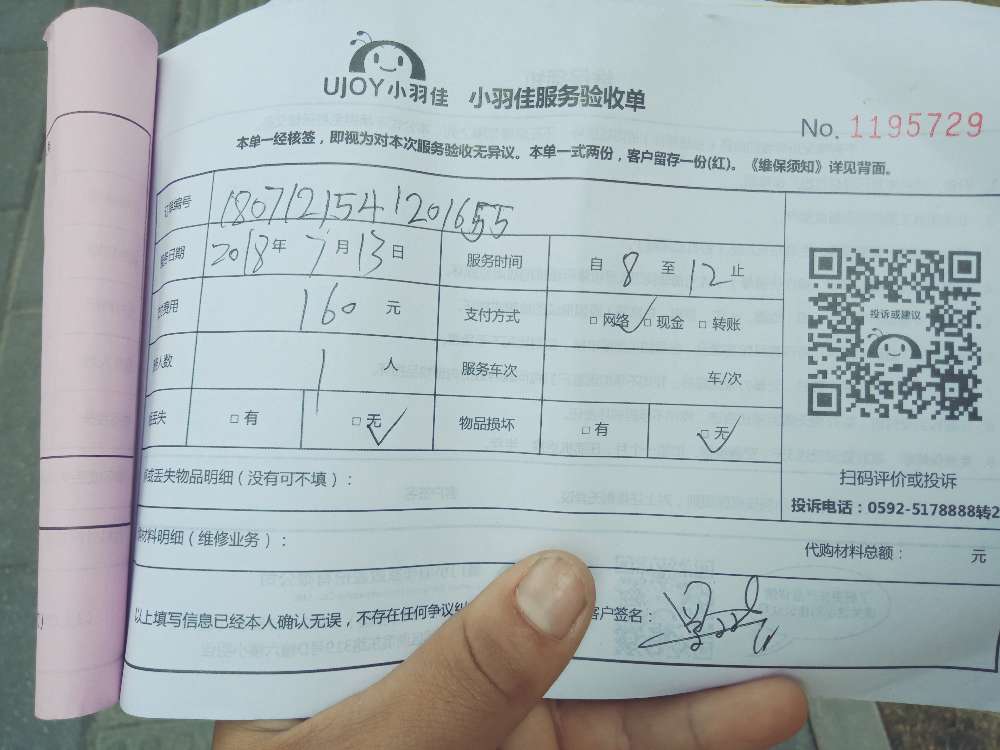 UJOY小羽佳 小羽佳服务验收单
No. 1195729
本单一经核签，即视为对本次服务验收无异议。本单一式两份，客户留存一份(红)。《维保须知》详见背面。
订单编号 1807121541201655
服务日期 2018年 7月 13日 服务时间 自 8 至 12 止
费用 160 元 支付方式 □ 网络 □ 现金 □ 转账
人数 1 人 服务车次 车/次
丢失 □ 有 □ 无 物品损坏 □ 有 □ 无
投诉或建议
扫码评价或投诉
投诉电话：0592-5178888转2
或丢失物品明细（没有可不填）：
材料明细（维修业务）： 代购材料总额： 元
以上填写信息已经本人确认无误，不存在任何争议纠 客户签名：